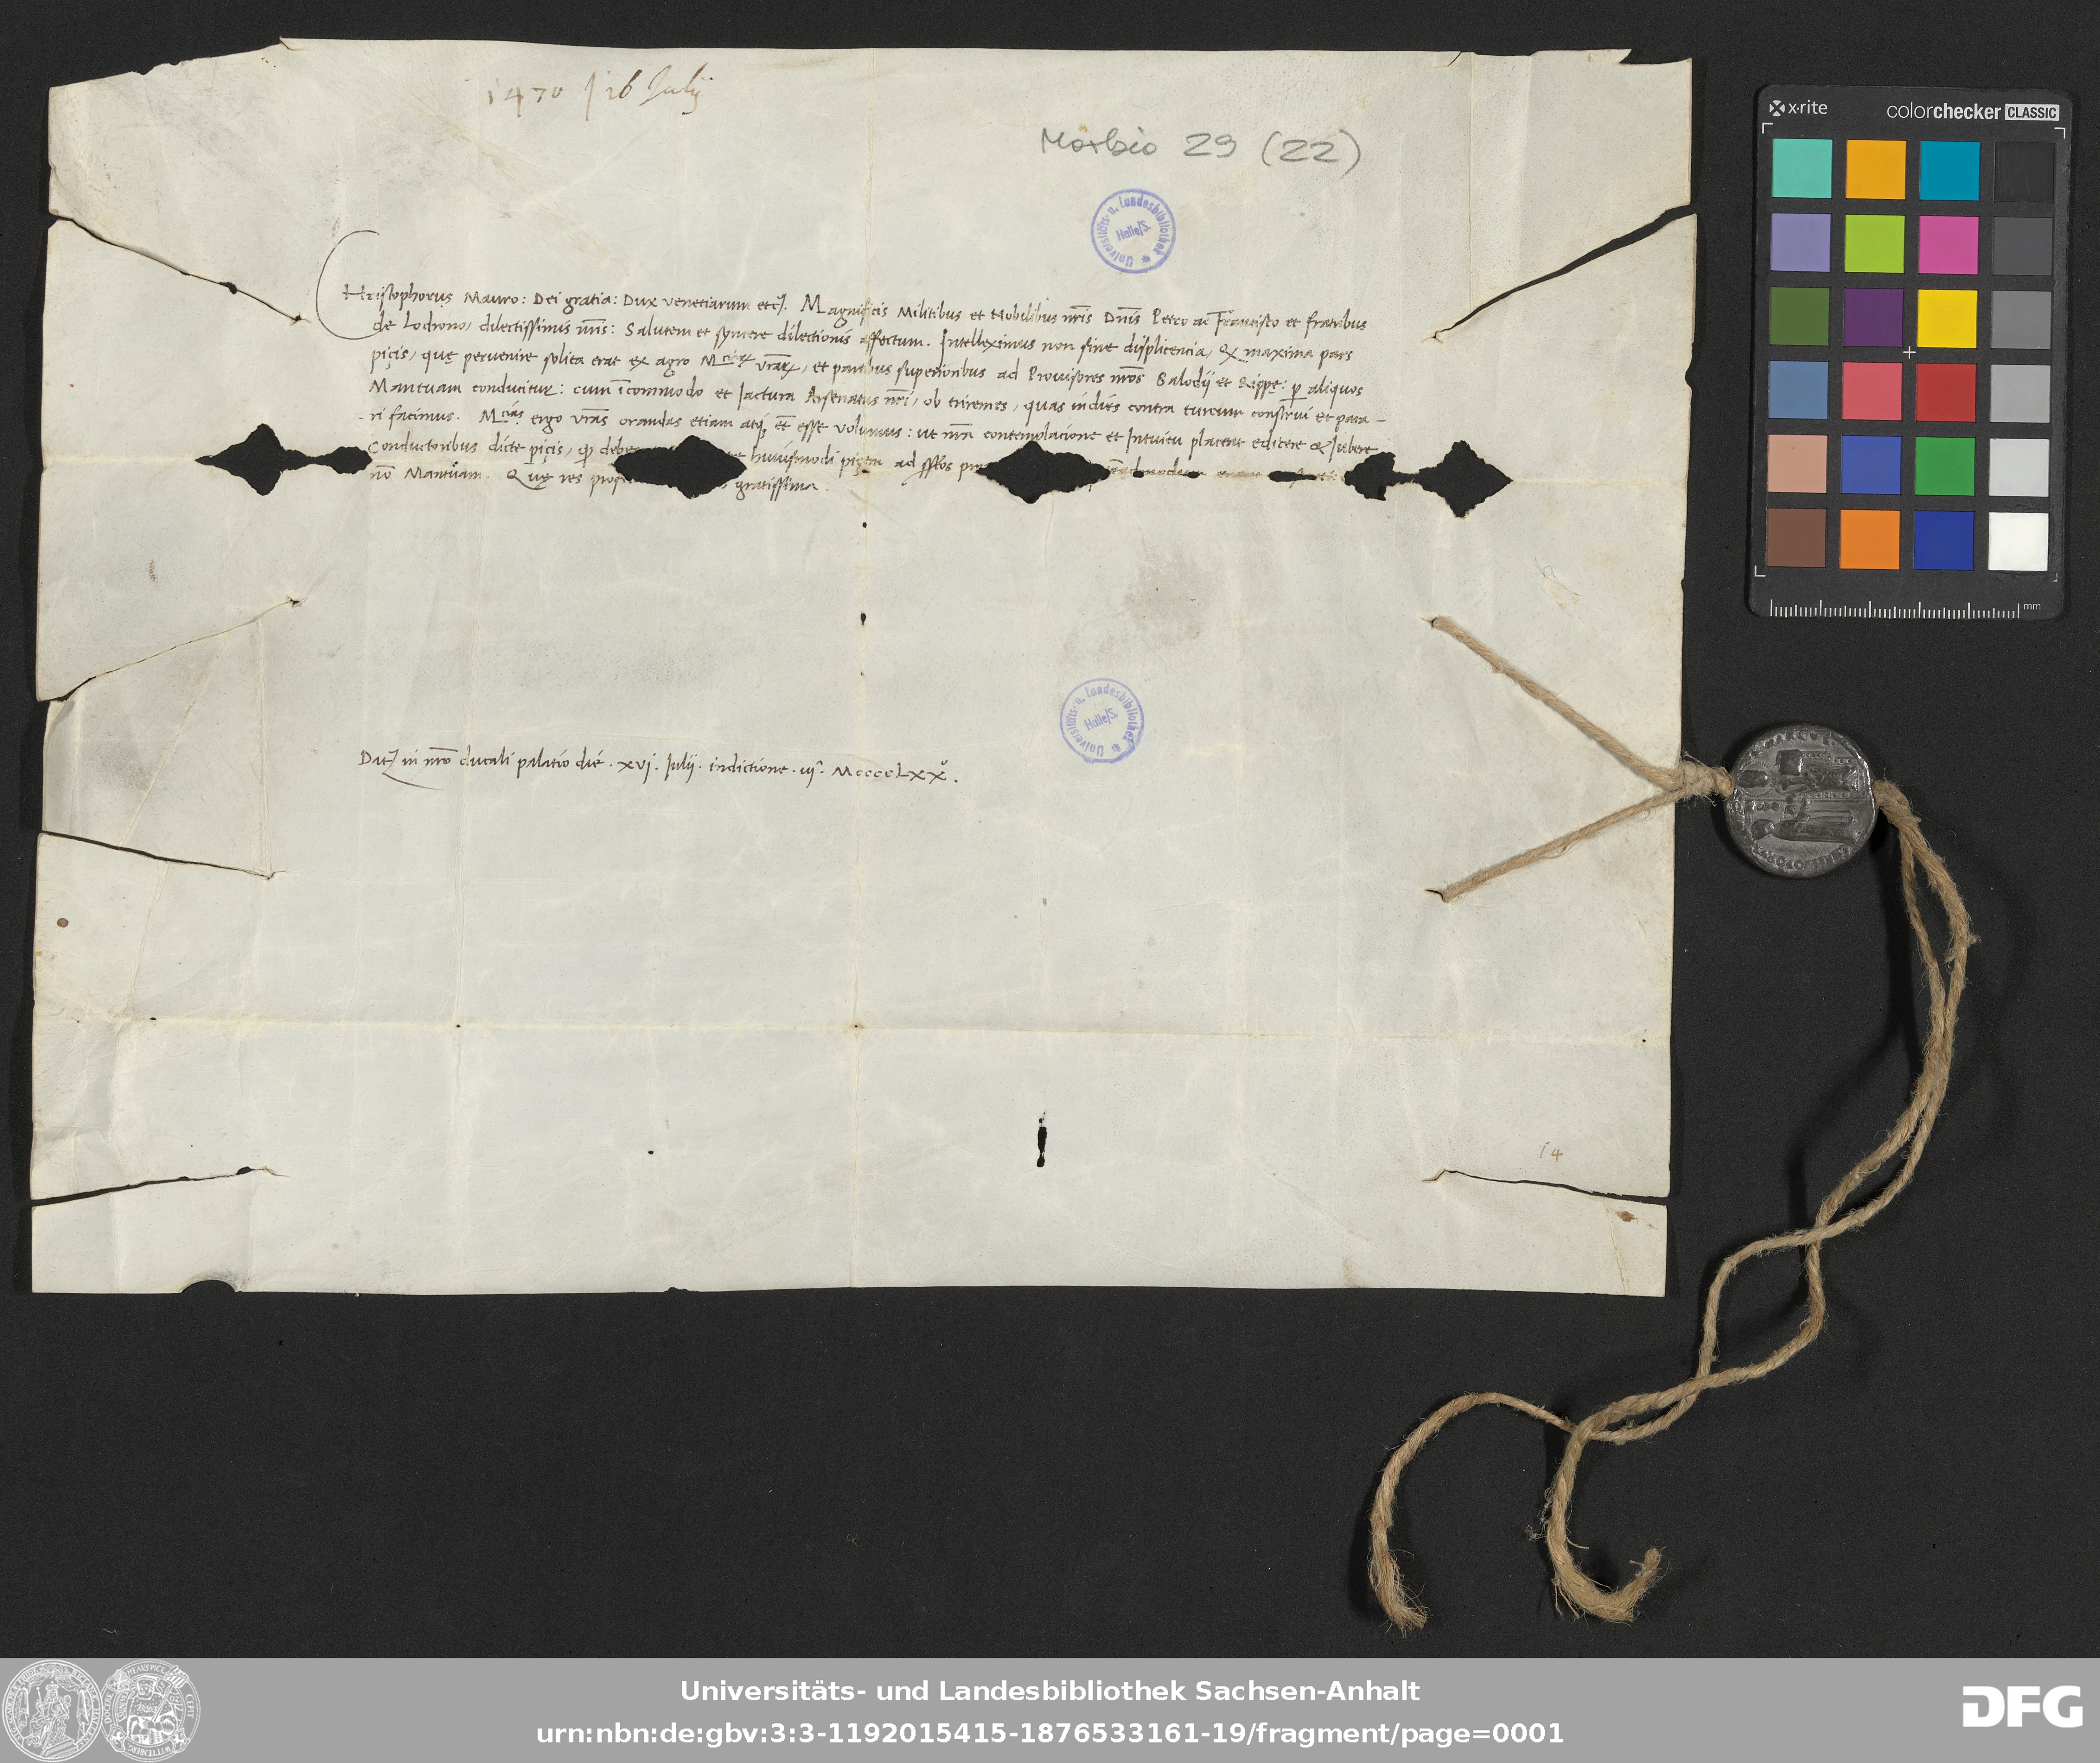 1470 / 16 Julij
Morbio 29 (22)
Universitäts- u. Landesbibliothek Halle/S.
CHristophorus Mauro: Dei gratia: Dux venetiarum etc. Magnificis Militibus et Nobilibus nr̄is Dn̄is Petro ac Francisco et fratribus
de Lodrono, dilectissimis nr̄is: Salutem et syncere dilectionis affectum. Intelleximus non sine displicencia, ꝙ maxima pars
piçis, quę pervenire solita erat ex agro M. vr̄arꝝ, et partibus superioribus ad Provisores nr̄os Salodij et Rippę: ꝑ aliquos
Mantuam conducitur: cum īcommodo et Jactura Arsenatus nr̄i, ob triremes, quas indies contra turcum construi et para-
ri facimus. M ergo vr̄as orandas etiam atqꝫ et̄ esse volumus: ut nr̄a contemplacione et Intuitu placeat edicere & Jubere
Conductoribus dicte piçis, ꝙ debe huiusmodi piçem ad pr
nō Mantuam. Quę res prof gratissima.
Universitäts- u. Landesbibliothek Halle/S.
Dat in nr̄o ducali palatio die. xvi. Julij. indictione. iij. MccccLxxº.
14
x·rite colorchecker CLASSIC
mm
Universitäts- und Landesbibliothek Sachsen-Anhalt
urn:nbn:de:gbv:3:3-1192015415-1876533161-19/fragment/page=0001
DFG